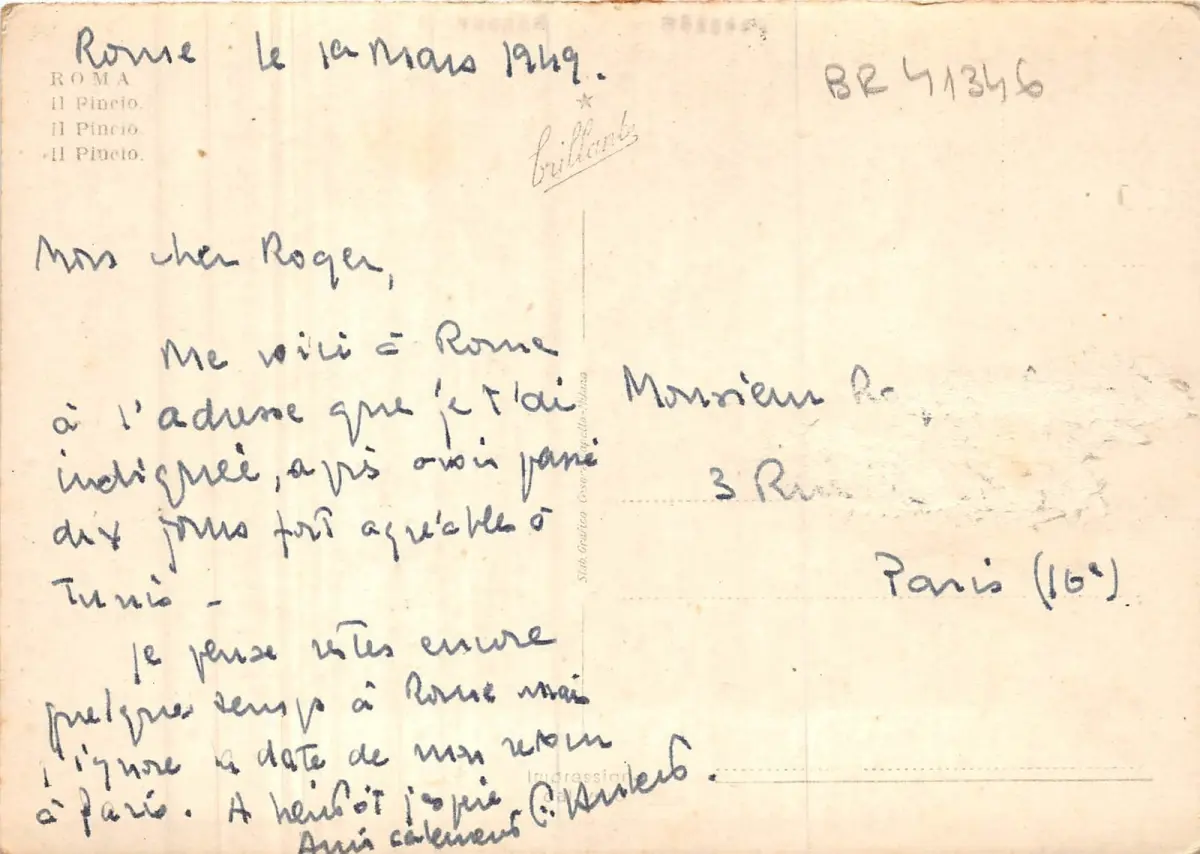 Rome le 1er Mars 1949.
ROMA
Il Pincio.
Il Pincio.
Il Pincio.
BR 41346
brillante
Mon cher Roger,
Me voici à Rome
à l'adresse que je t'ai
indiquée, après avoir passé
dix jours fort agréables à
Tunis -
Je pense rester encore
quelques temps à Rome mais
j'ignore la date de mon retour
à Paris. A bientôt j'espère
Amicalement
Stab. Grafico
Monsieur
3 Rue
Paris (16e)